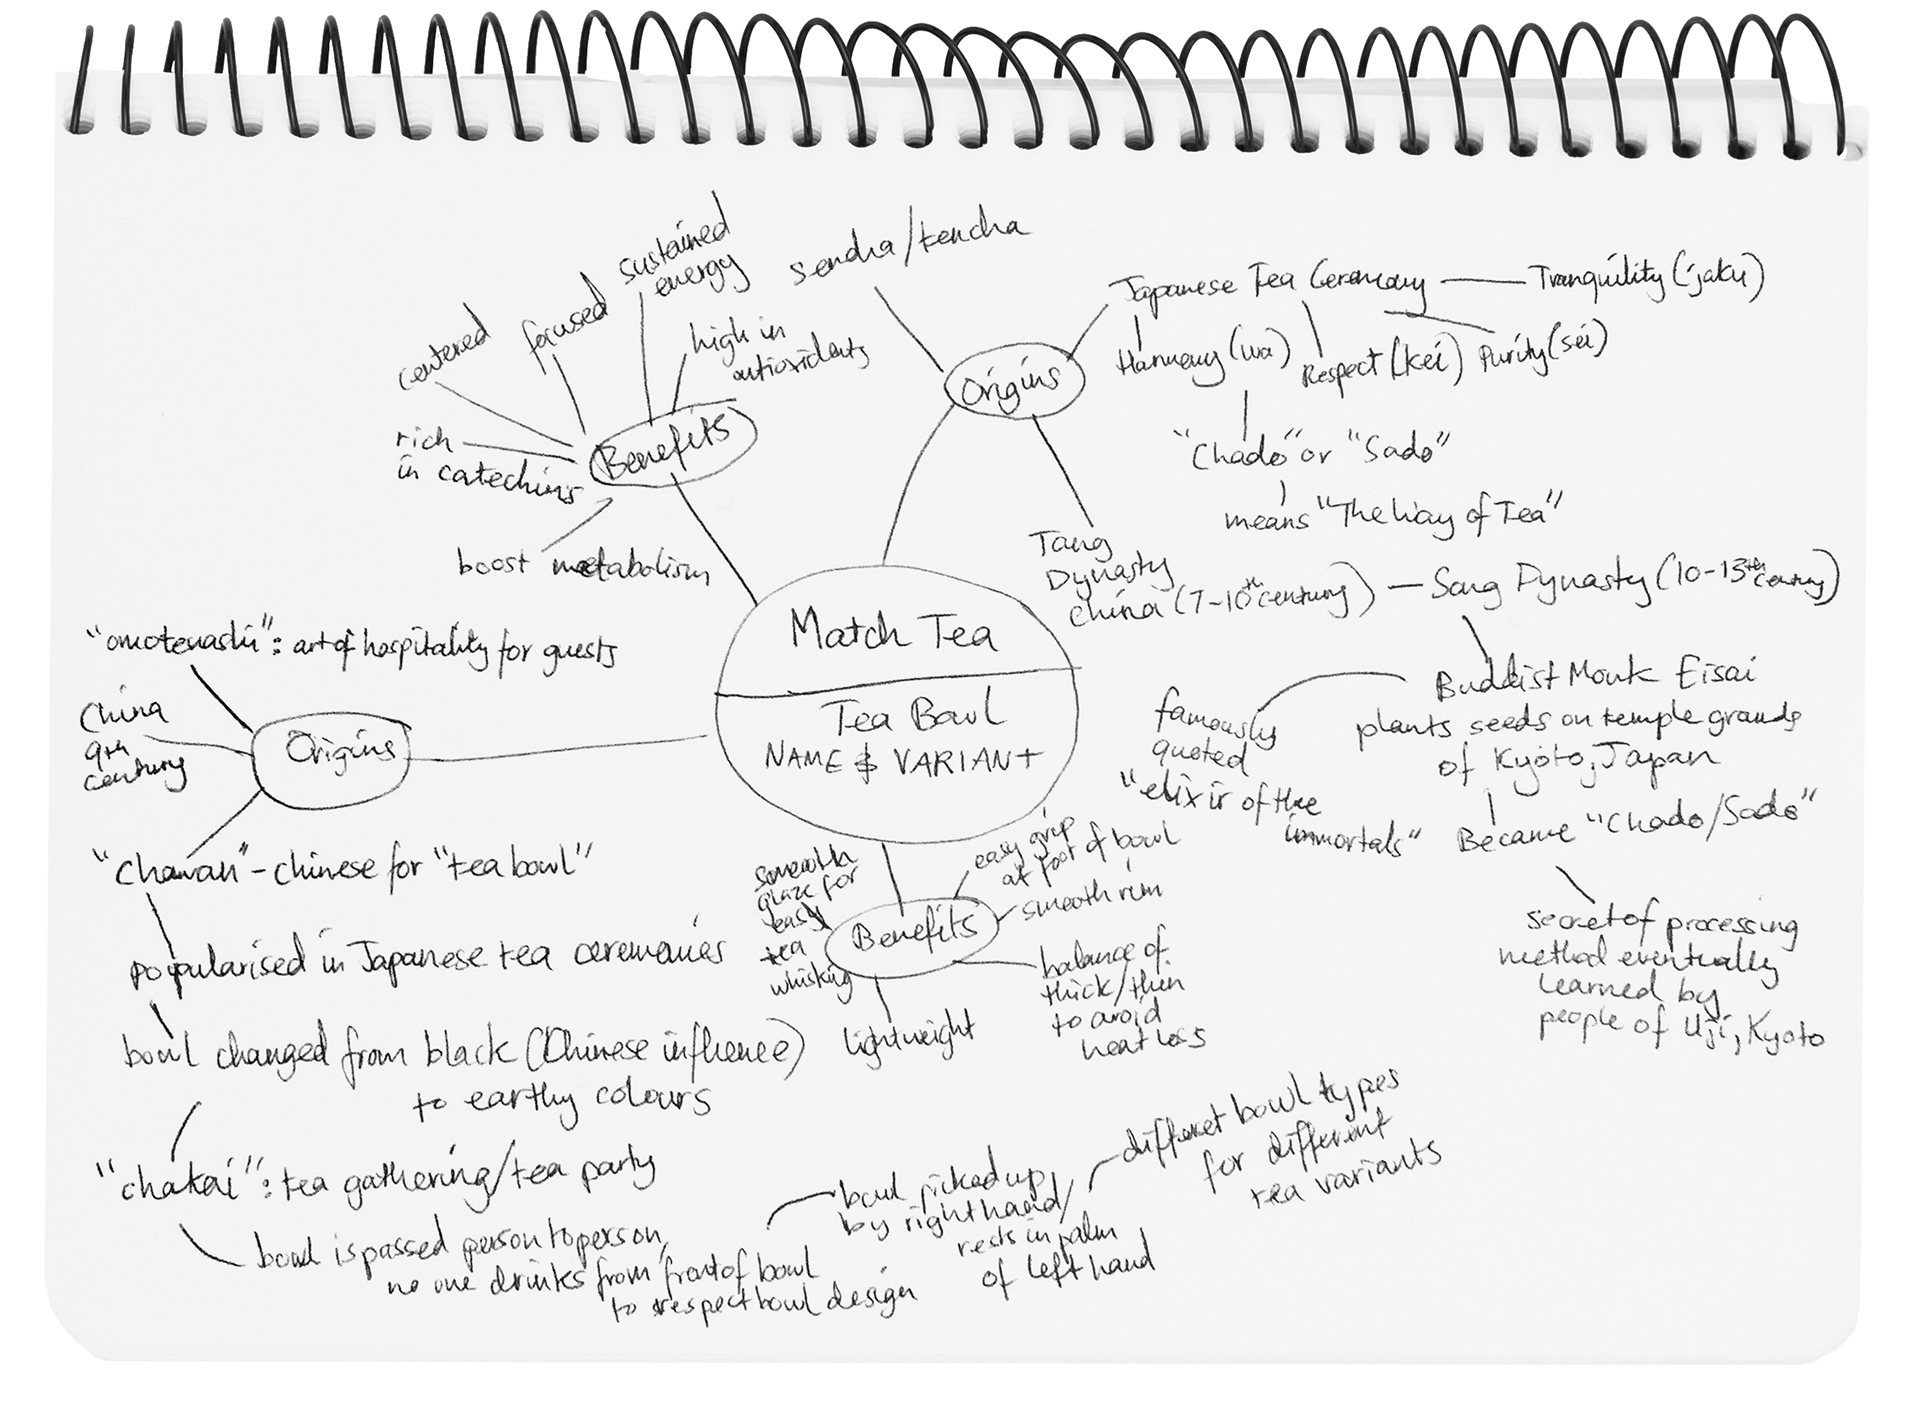 Match Tea
Tea Bowl
NAME & VARIANT
Benefits
centered
focused
sustained
energy
high in
antioxidants
rich
in catechins
boost metabolism
Origins
sencha/tencha
Japanese Tea Ceremony
Tranquility (jaku)
Harmony (wa)
Respect (kei)
Purity (sei)
"Chado" or "Sado"
means "The Way of Tea"
Tang
Dynasty
China (7-10th century)
Song Dynasty (10-13th century)
Buddist Monk Eisai
plants seeds on temple grounds
of Kyoto, Japan
famously
quoted
"elixir of the
immortals"
Became "Chado/Sado"
secret of processing
method eventually
learned by
people of Uji, Kyoto
Origins
"omotenashi": art of hospitality for guests
China
9th
century
"Chawan" - chinese for "tea bowl"
popularised in Japanese tea ceremonies
bowl changed from black (Chinese influence)
to earthy colours
"chakai": tea gathering/tea party
bowl is passed person to person,
no one drinks from front of bowl
to respect bowl design
bowl picked up
by right hand/
rests in palm
of left hand
different bowl types
for different
tea variants
Benefits
smooth
glaze for
easy
tea
whisking
easy grip
at foot of bowl
smooth rim
balance of
thick/thin
to avoid
heat loss
lightweight